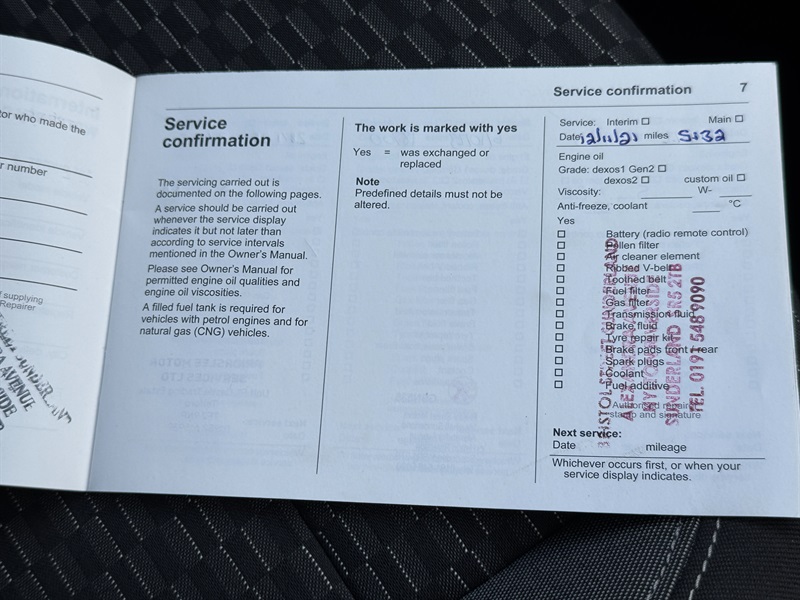 tor who made the
r number
f supplying
Repairer
SUNDERLAND
AVENUE
Service confirmation 7
Service
confirmation
The servicing carried out is
documented on the following pages.
A service should be carried out
whenever the service display
indicates it but not later than
according to service intervals
mentioned in the Owner's Manual.
Please see Owner's Manual for
permitted engine oil qualities and
engine oil viscosities.
A filled fuel tank is required for
vehicles with petrol engines and for
natural gas (CNG) vehicles.
The work is marked with yes
Yes = was exchanged or
replaced
Note
Predefined details must not be
altered.
Service: Interim ☐ Main ☐
Date 12/11/21 miles 5132
Engine oil
Grade: dexos1 Gen2 ☐
dexos2 ☐ custom oil ☐
Viscosity: W-
Anti-freeze, coolant °C
Yes
☐ Battery (radio remote control)
☐ Pollen filter
☐ Air cleaner element
☐ Ribbed V-belt
☐ Toothed belt
☐ Fuel filter
☐ Gas filter
☐ Transmission fluid
☐ Brake fluid
☐ Tyre repair kit
☐ Brake pads front / rear
☐ Spark plugs
☐ Coolant
☐ Fuel additive
Authorised repairer
stamp and signature
BRISTOL STREET SUNDERLAND
SUNDERLAND SR5 2TB
TEL. 0191 548 9090
Next service:
Date mileage
Whichever occurs first, or when your
service display indicates.